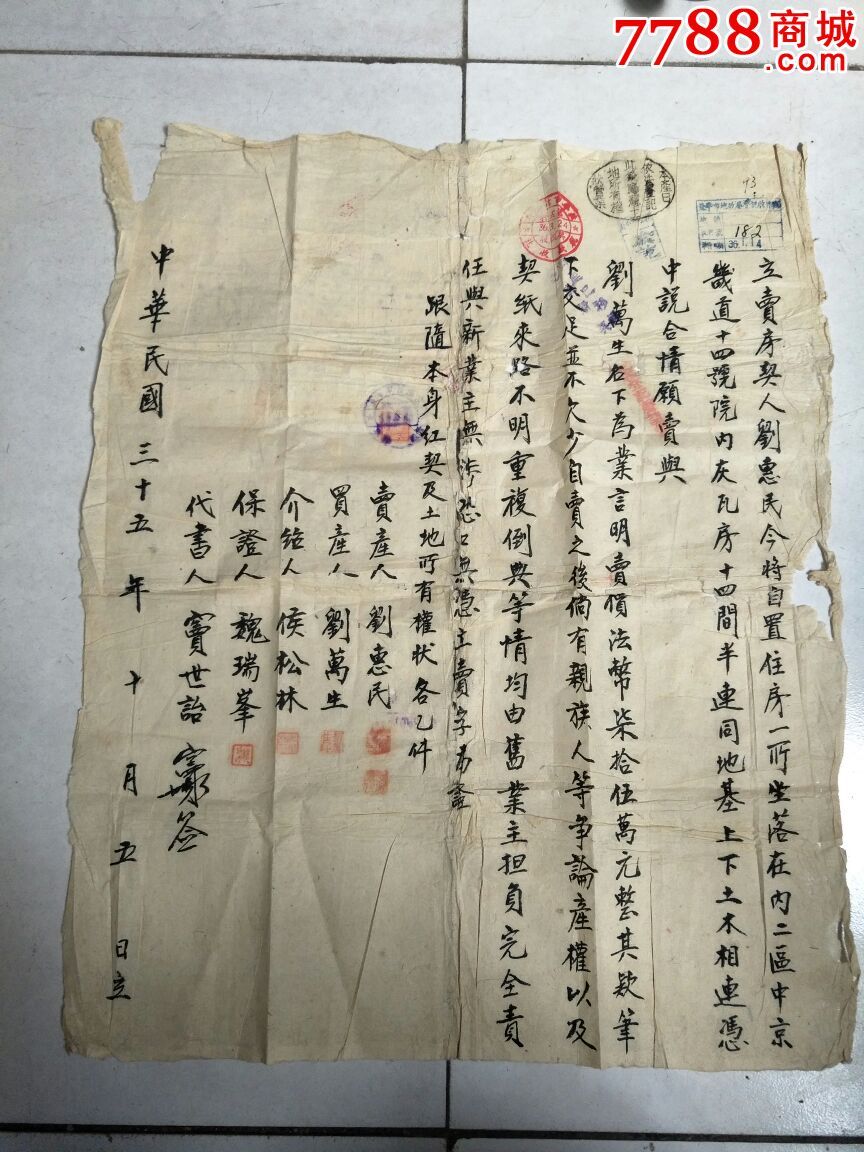 7788商城
.com
93
182
36.1.14
本產日
依法登記
立賣房契人劉惠民今將自置住房一所坐落在內二區中京
畿道十四號院內灰瓦房十四間半連同地基上下土木相連憑
中説合情願賣與
劉萬生名下為業言明賣價法幣柒拾伍萬元整其欵筆
下交足並不欠少自賣之後倘有親族人等争論產權以及
契紙來路不明重複倒典等情均由舊業主担負完全責
任與新業主無涉恐口無憑立賣字為證
跟隨本身红契及土地所有權状各乙件
賣產人 劉惠民
買產人 劉萬生
介紹人 侯松林
保證人 魏瑞峯
代書人 竇世詒
中華民國三十五年十月五日立